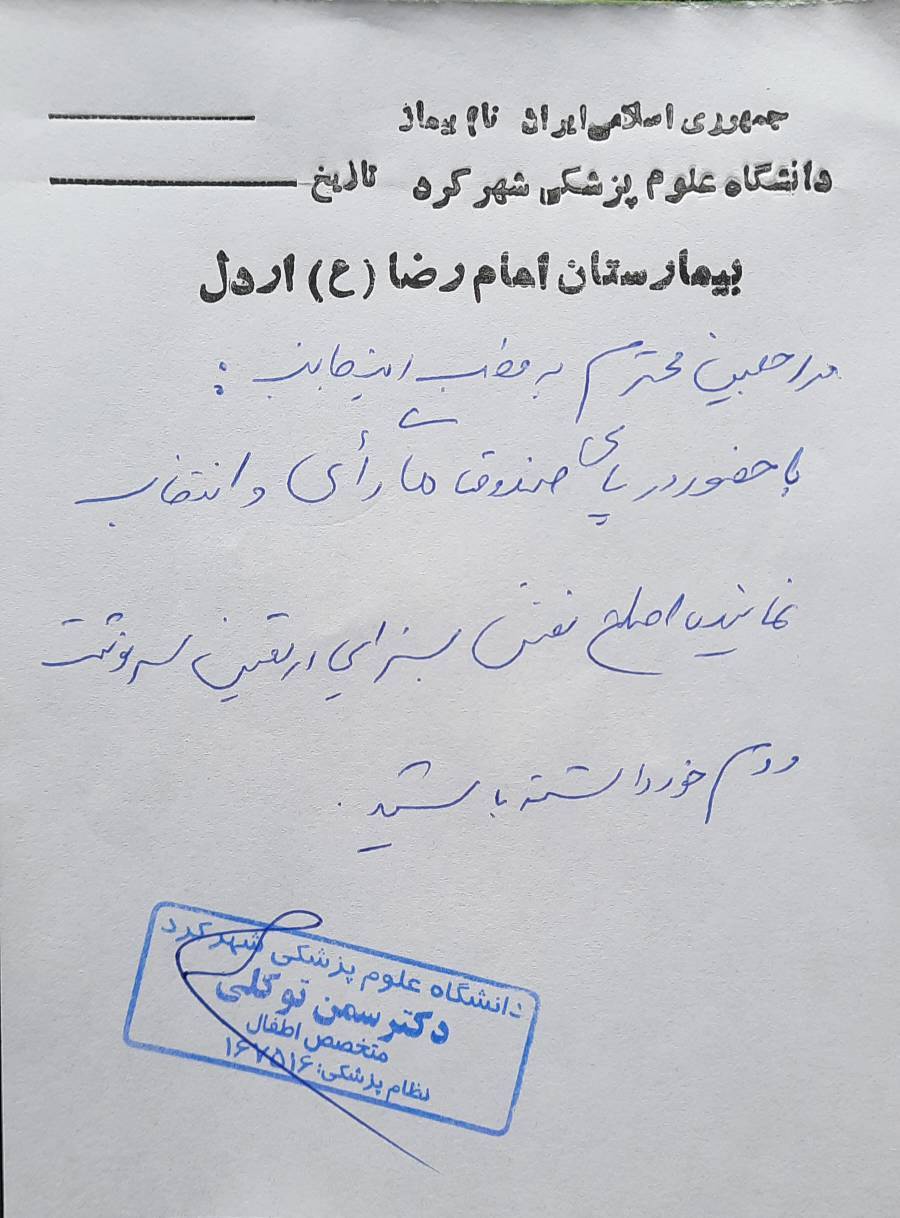 جمهوری اسلامی ایران نام بیمار
دانشگاه علوم پزشکی شهر کرد تاریخ
بیمارستان امام رضا (ع) اردل
مراجعین محترم به مطب اینجانب :
با حضور در پای صندوقهای رأی و انتخاب
نماینده اصلح نقش بسزایی در تعیین سرنوشت
مردم خود داشته باشید .
دانشگاه علوم پزشکی شهر کرد
دکتر سمن توکلی
متخصص اطفال
نظام پزشکی: ۱۶۷۵۱۶